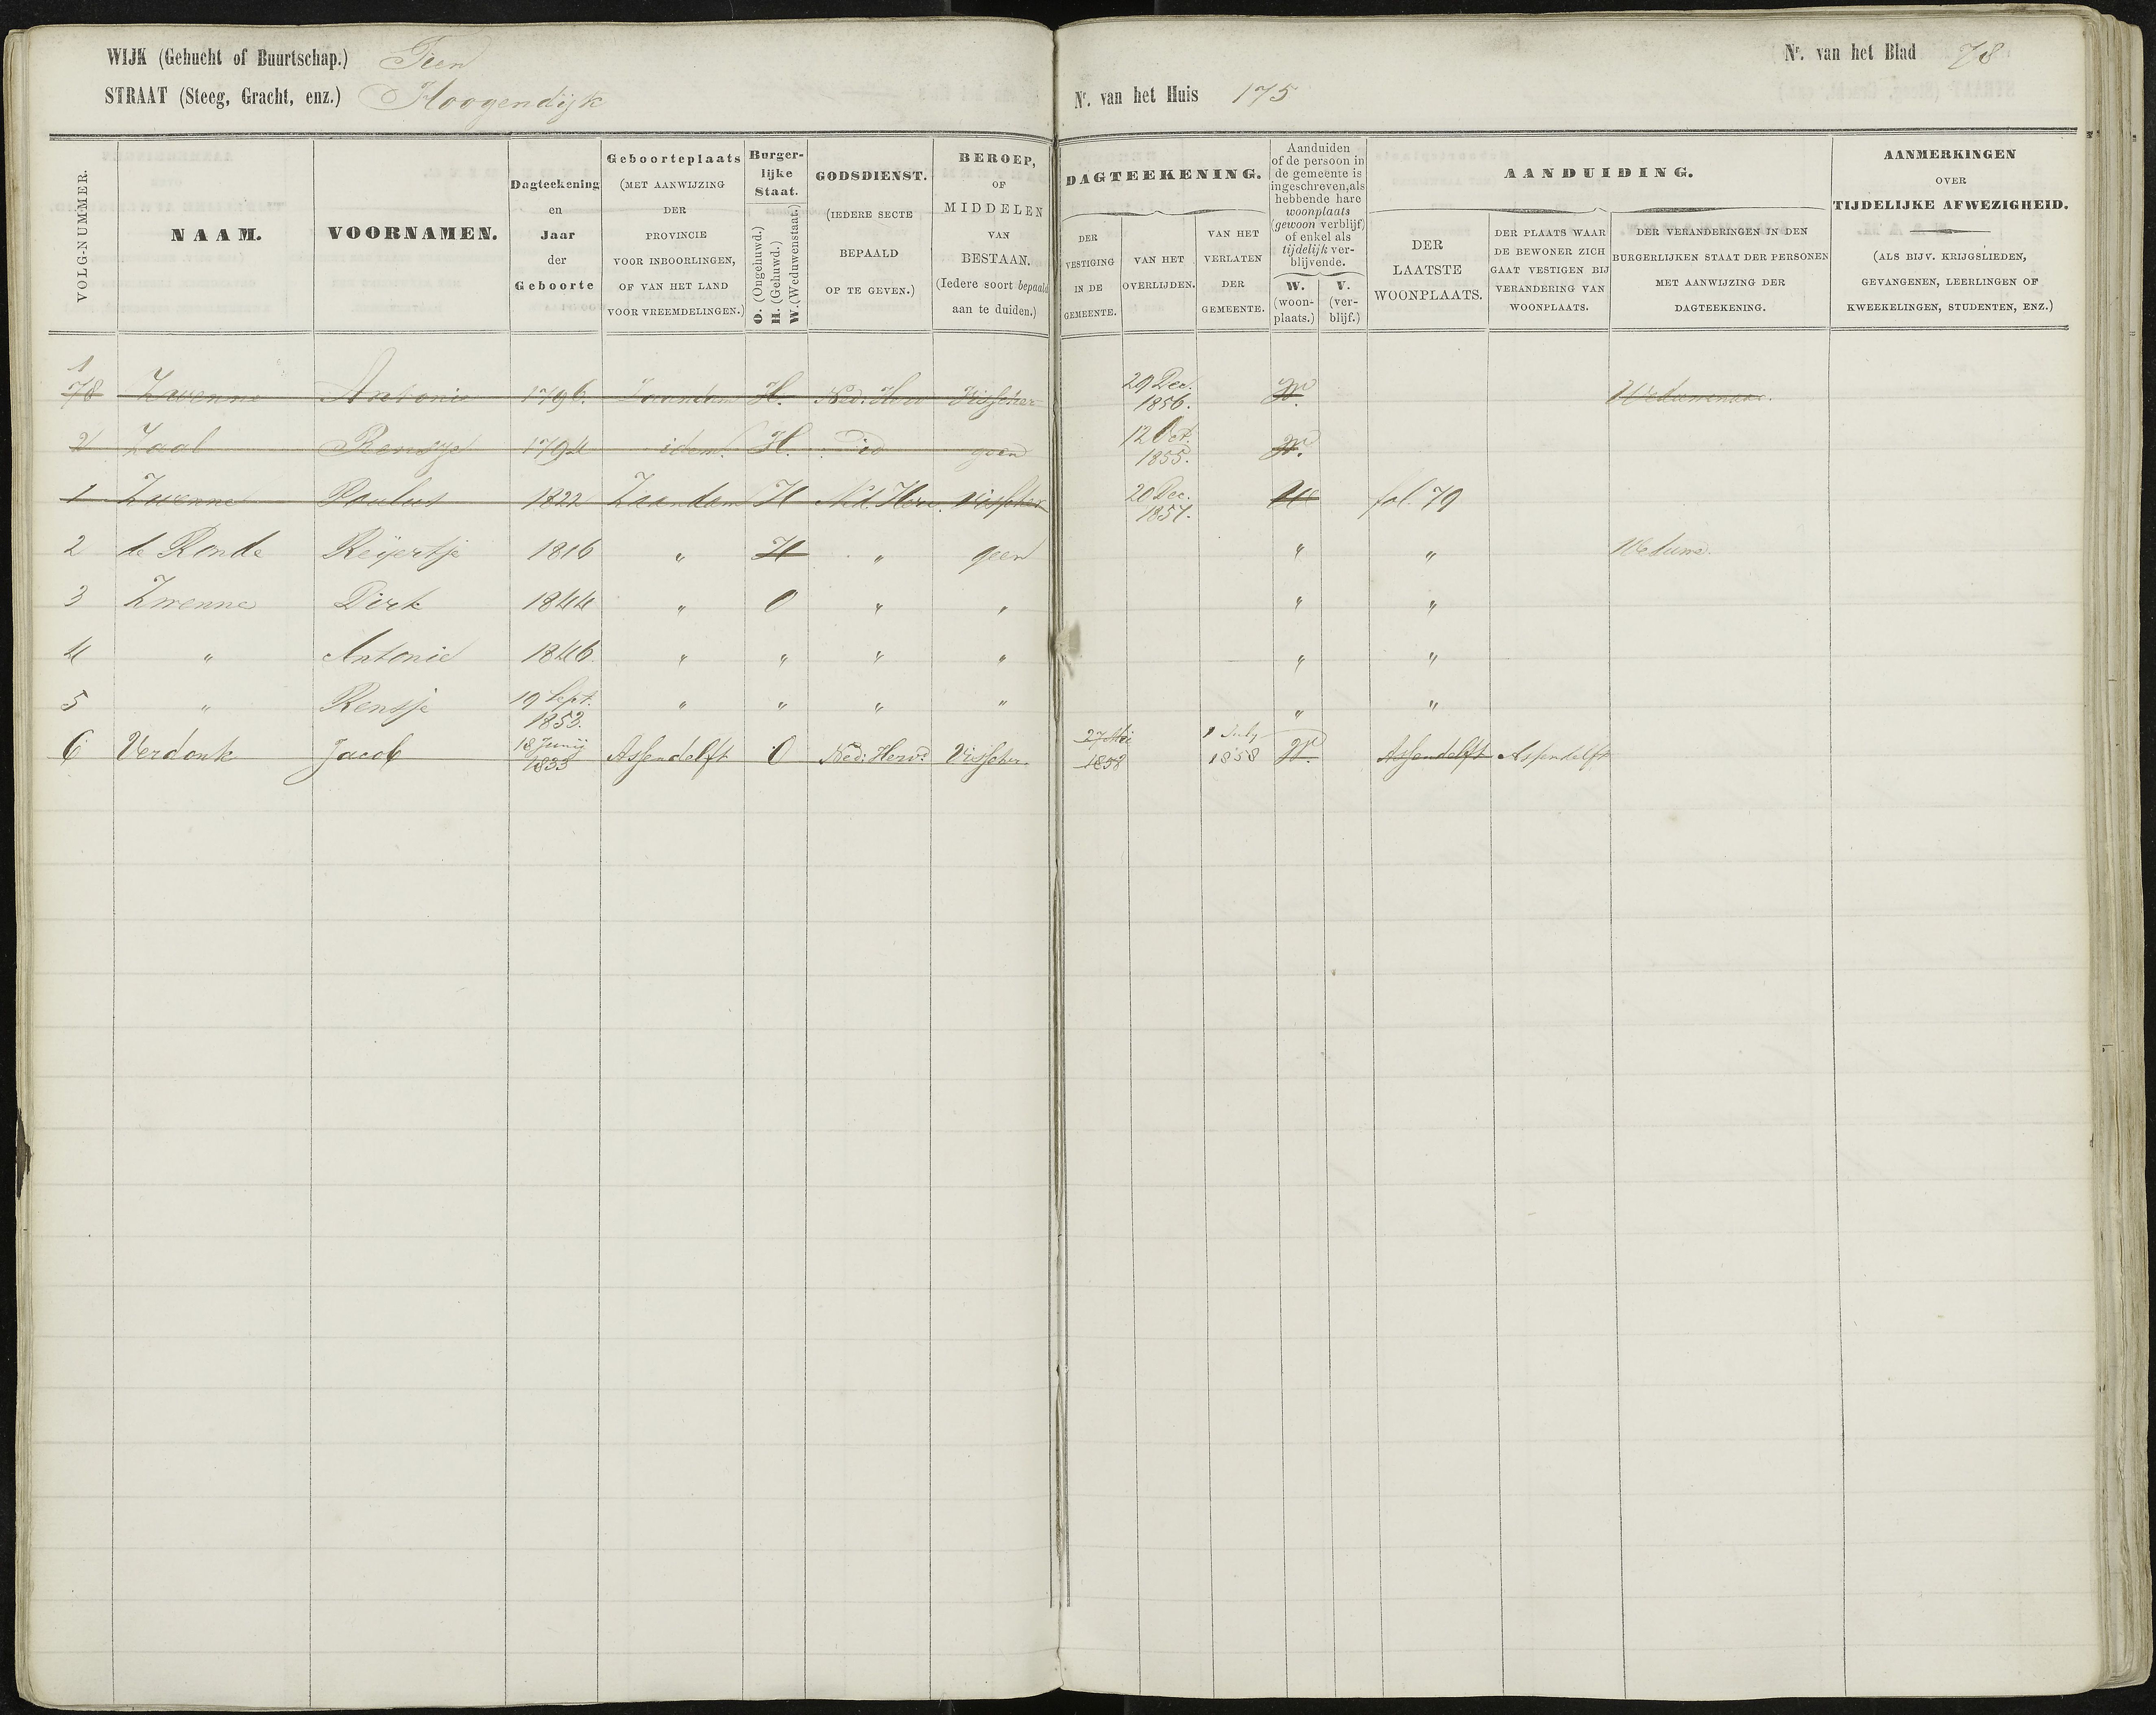 WIJK (Gehucht of Buurtschap.) Tien
STRAAT (Steeg, Gracht, enz.) Hoogendijk
Nr. van het Huis 175
Nr. van het Blad 78
VOLG-NUMMER.
NAAM.
VOORNAMEN.
Dagteekening
en
Jaar
der
Geboorte
Geboorteplaats
(MET AANWIJZING
DER
PROVINCIE
VOOR INBOORLINGEN,
OF VAN HET LAND
VOOR VREEMDELINGEN.)
Burger-
lijke
Staat.
O. (Ongehuwd.)
H. (Gehuwd.)
W. (Weduwenstaat.)
GODSDIENST.
(IEDERE SECTE
BEPAALD
OP TE GEVEN.)
BEROEP,
OF
MIDDELEN
VAN
BESTAAN.
(Iedere soort bepaald
aan te duiden.)
DAGTEEKENING.
DER
VESTIGING
IN DE
GEMEENTE.
VAN HET
OVERLIJDEN.
VAN HET
VERLATEN
DER
GEMEENTE.
Aanduiden
of de persoon in
de gemeente is
ingeschreven, als
hebbende hare
woonplaats
(gewoon verblijf)
of enkel als
tijdelijk ver-
blijvende.
W.
(woon-
plaats.)
V.
(ver-
blijf.)
AANDUIDING.
DER
LAATSTE
WOONPLAATS.
DER PLAATS WAAR
DE BEWONER ZICH
GAAT VESTIGEN BIJ
VERANDERING VAN
WOONPLAATS.
DER VERANDERINGEN IN DEN
BURGERLIJKEN STAAT DER PERSONEN
MET AANWIJZING DER
DAGTEEKENING.
AANMERKINGEN
OVER
TIJDELIJKE AFWEZIGHEID.
(ALS BIJV. KRIJGSLIEDEN,
GEVANGENEN, LEERLINGEN OF
KWEEKELINGEN, STUDENTEN, ENZ.)
1
78 Zwenne Antonie 1796. Zaandam H. Ned: Herv Visscher 29 Dec. 1856. W. Weduwenaar.
2 Zaal Rensje 1794 idem. H. geen 12 Oct. 1855. W.
1 Zwenne Paulus 1822 Zaandam H Ned. Herv. Visscher 20 Dec. 1857. W fol. 79
2 de Ronde Reijertje 1816 " H " geen " " Weduwe.
3 Zwenne Dirk 1844 " O " " " "
4 " Antonie 1846 " " " " " "
5 " Rensje 19 Sept. 1853. " " " " " "
6 Verdonk Jacob 18 Junij 1833 Assendelft O Ned: Hervd: Visscher 27 Mei 1858 9 July 1858 W. Assendelft Assendelft